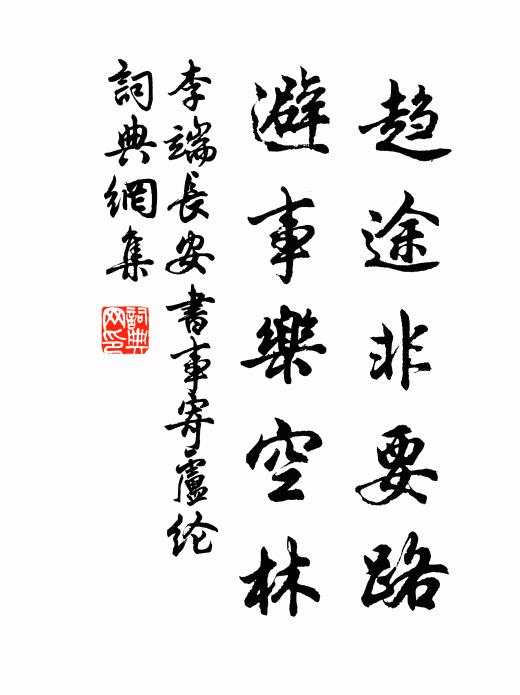 趋途非要路
避事樂空林
李端長安書事寄盧纶
詞典網集
詞典
网印